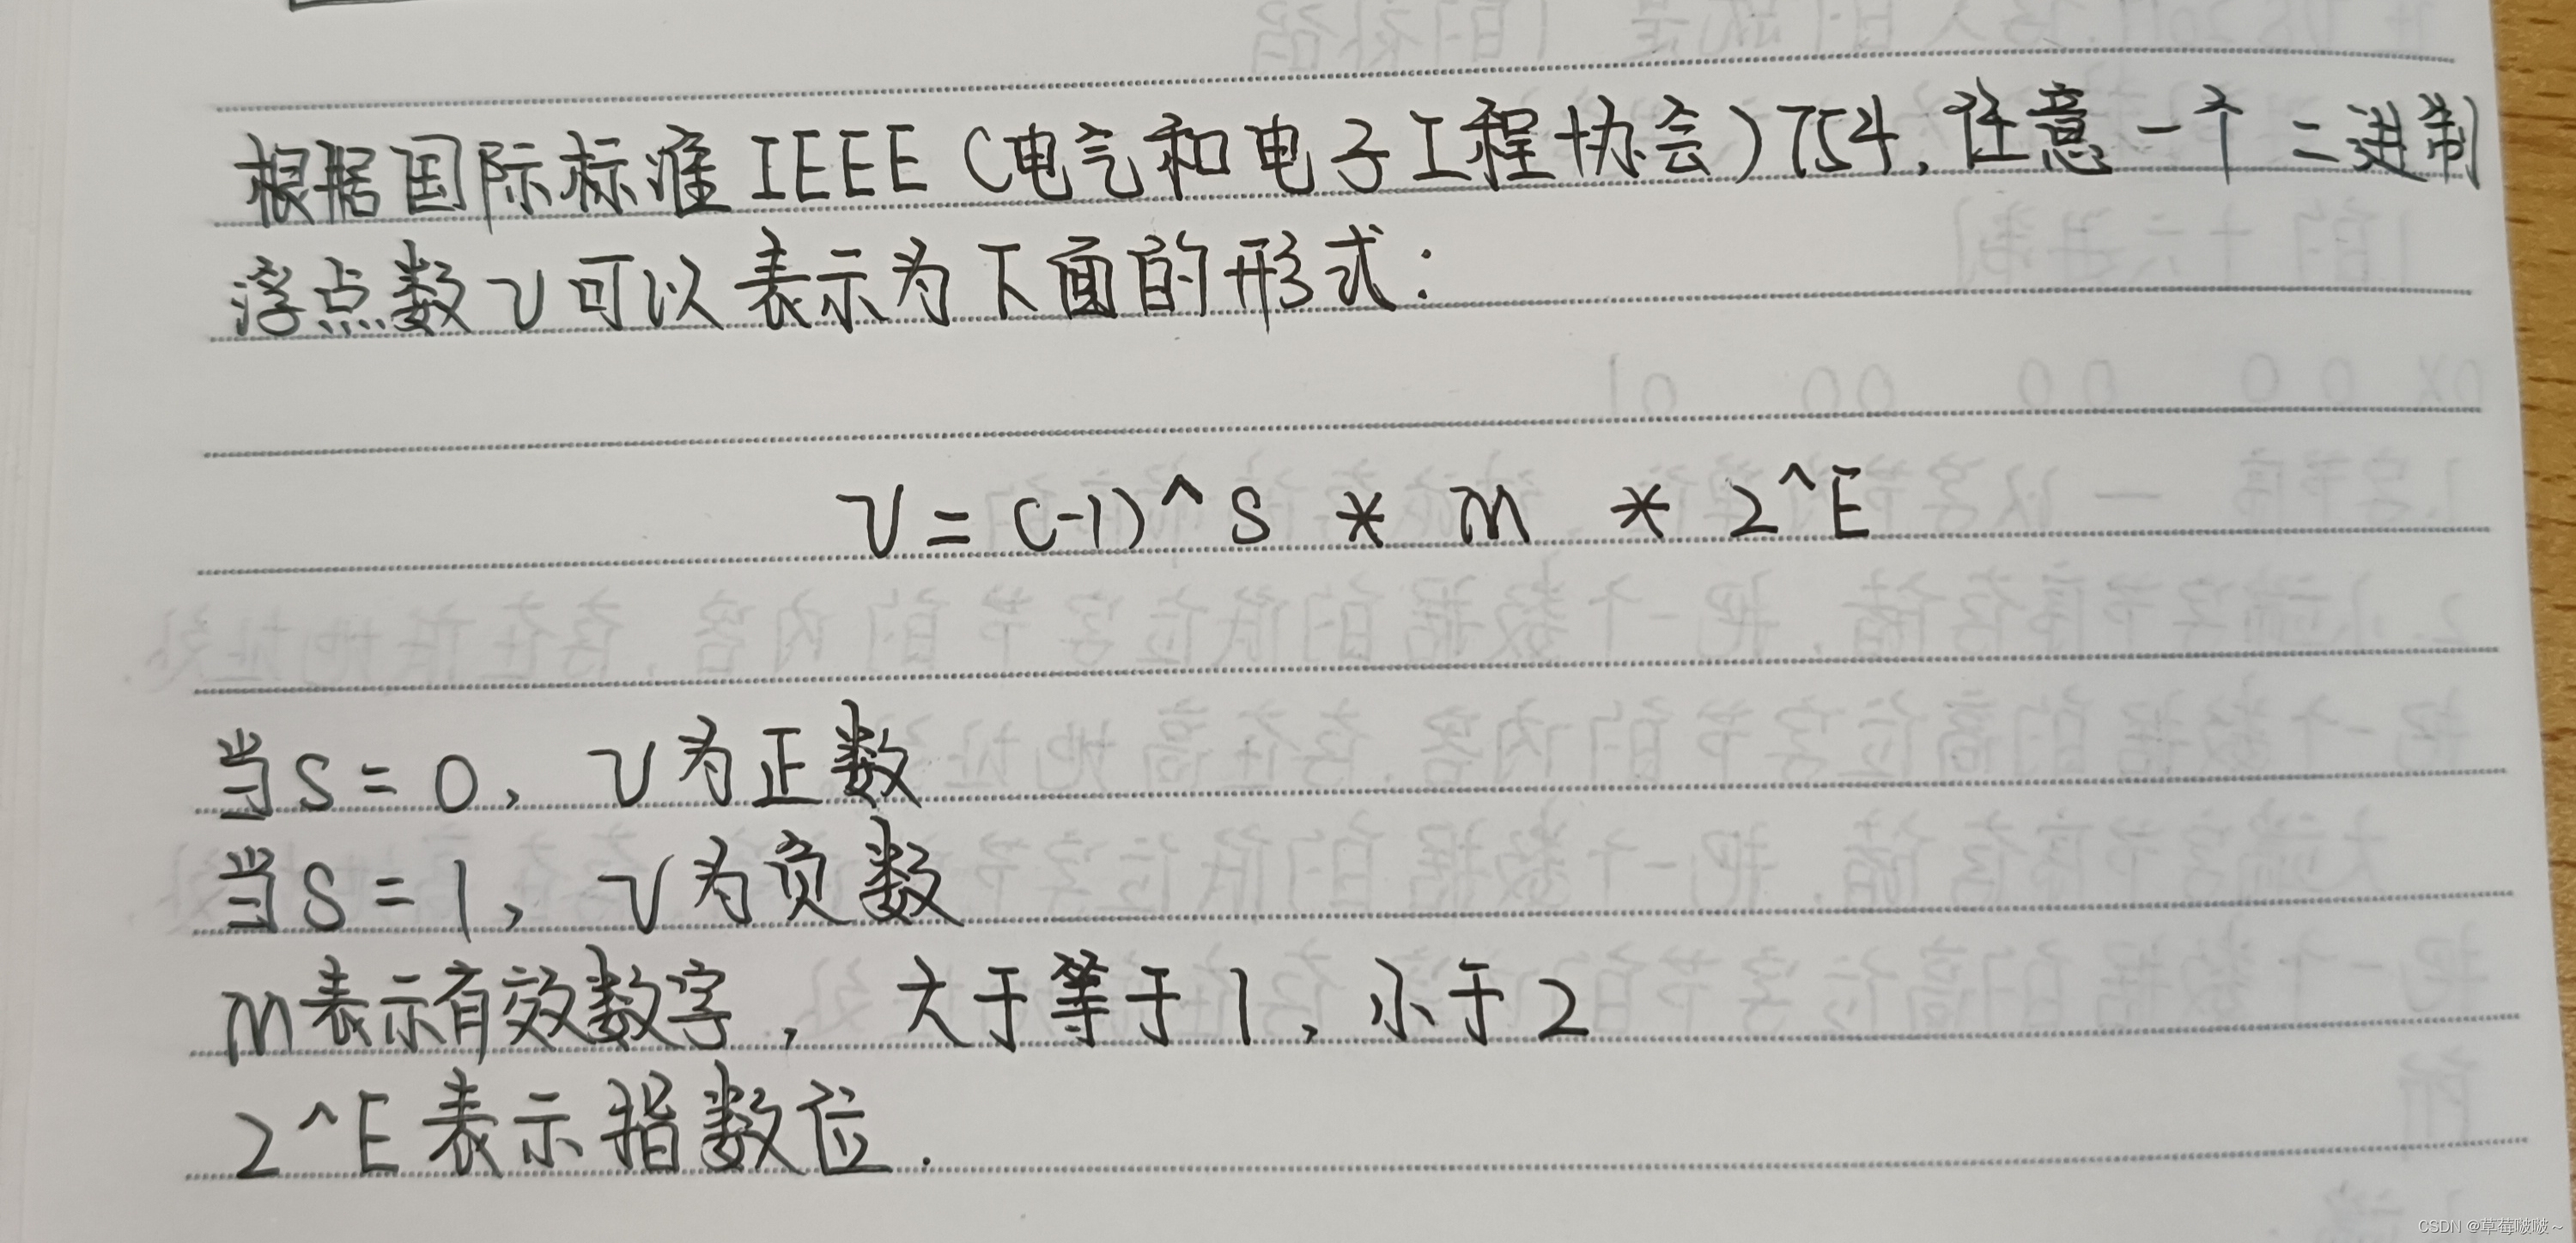 根据国际标准IEEE(电气和电子工程协会)754,任意一个二进制
浮点数V可以表示为下面的形式:
V = (-1)^S * M * 2^E
当S=0,V为正数
当S=1,V为负数
M表示有效数字,大于等于1,小于2
2^E表示指数位.
CSDN @草莓啵啵~